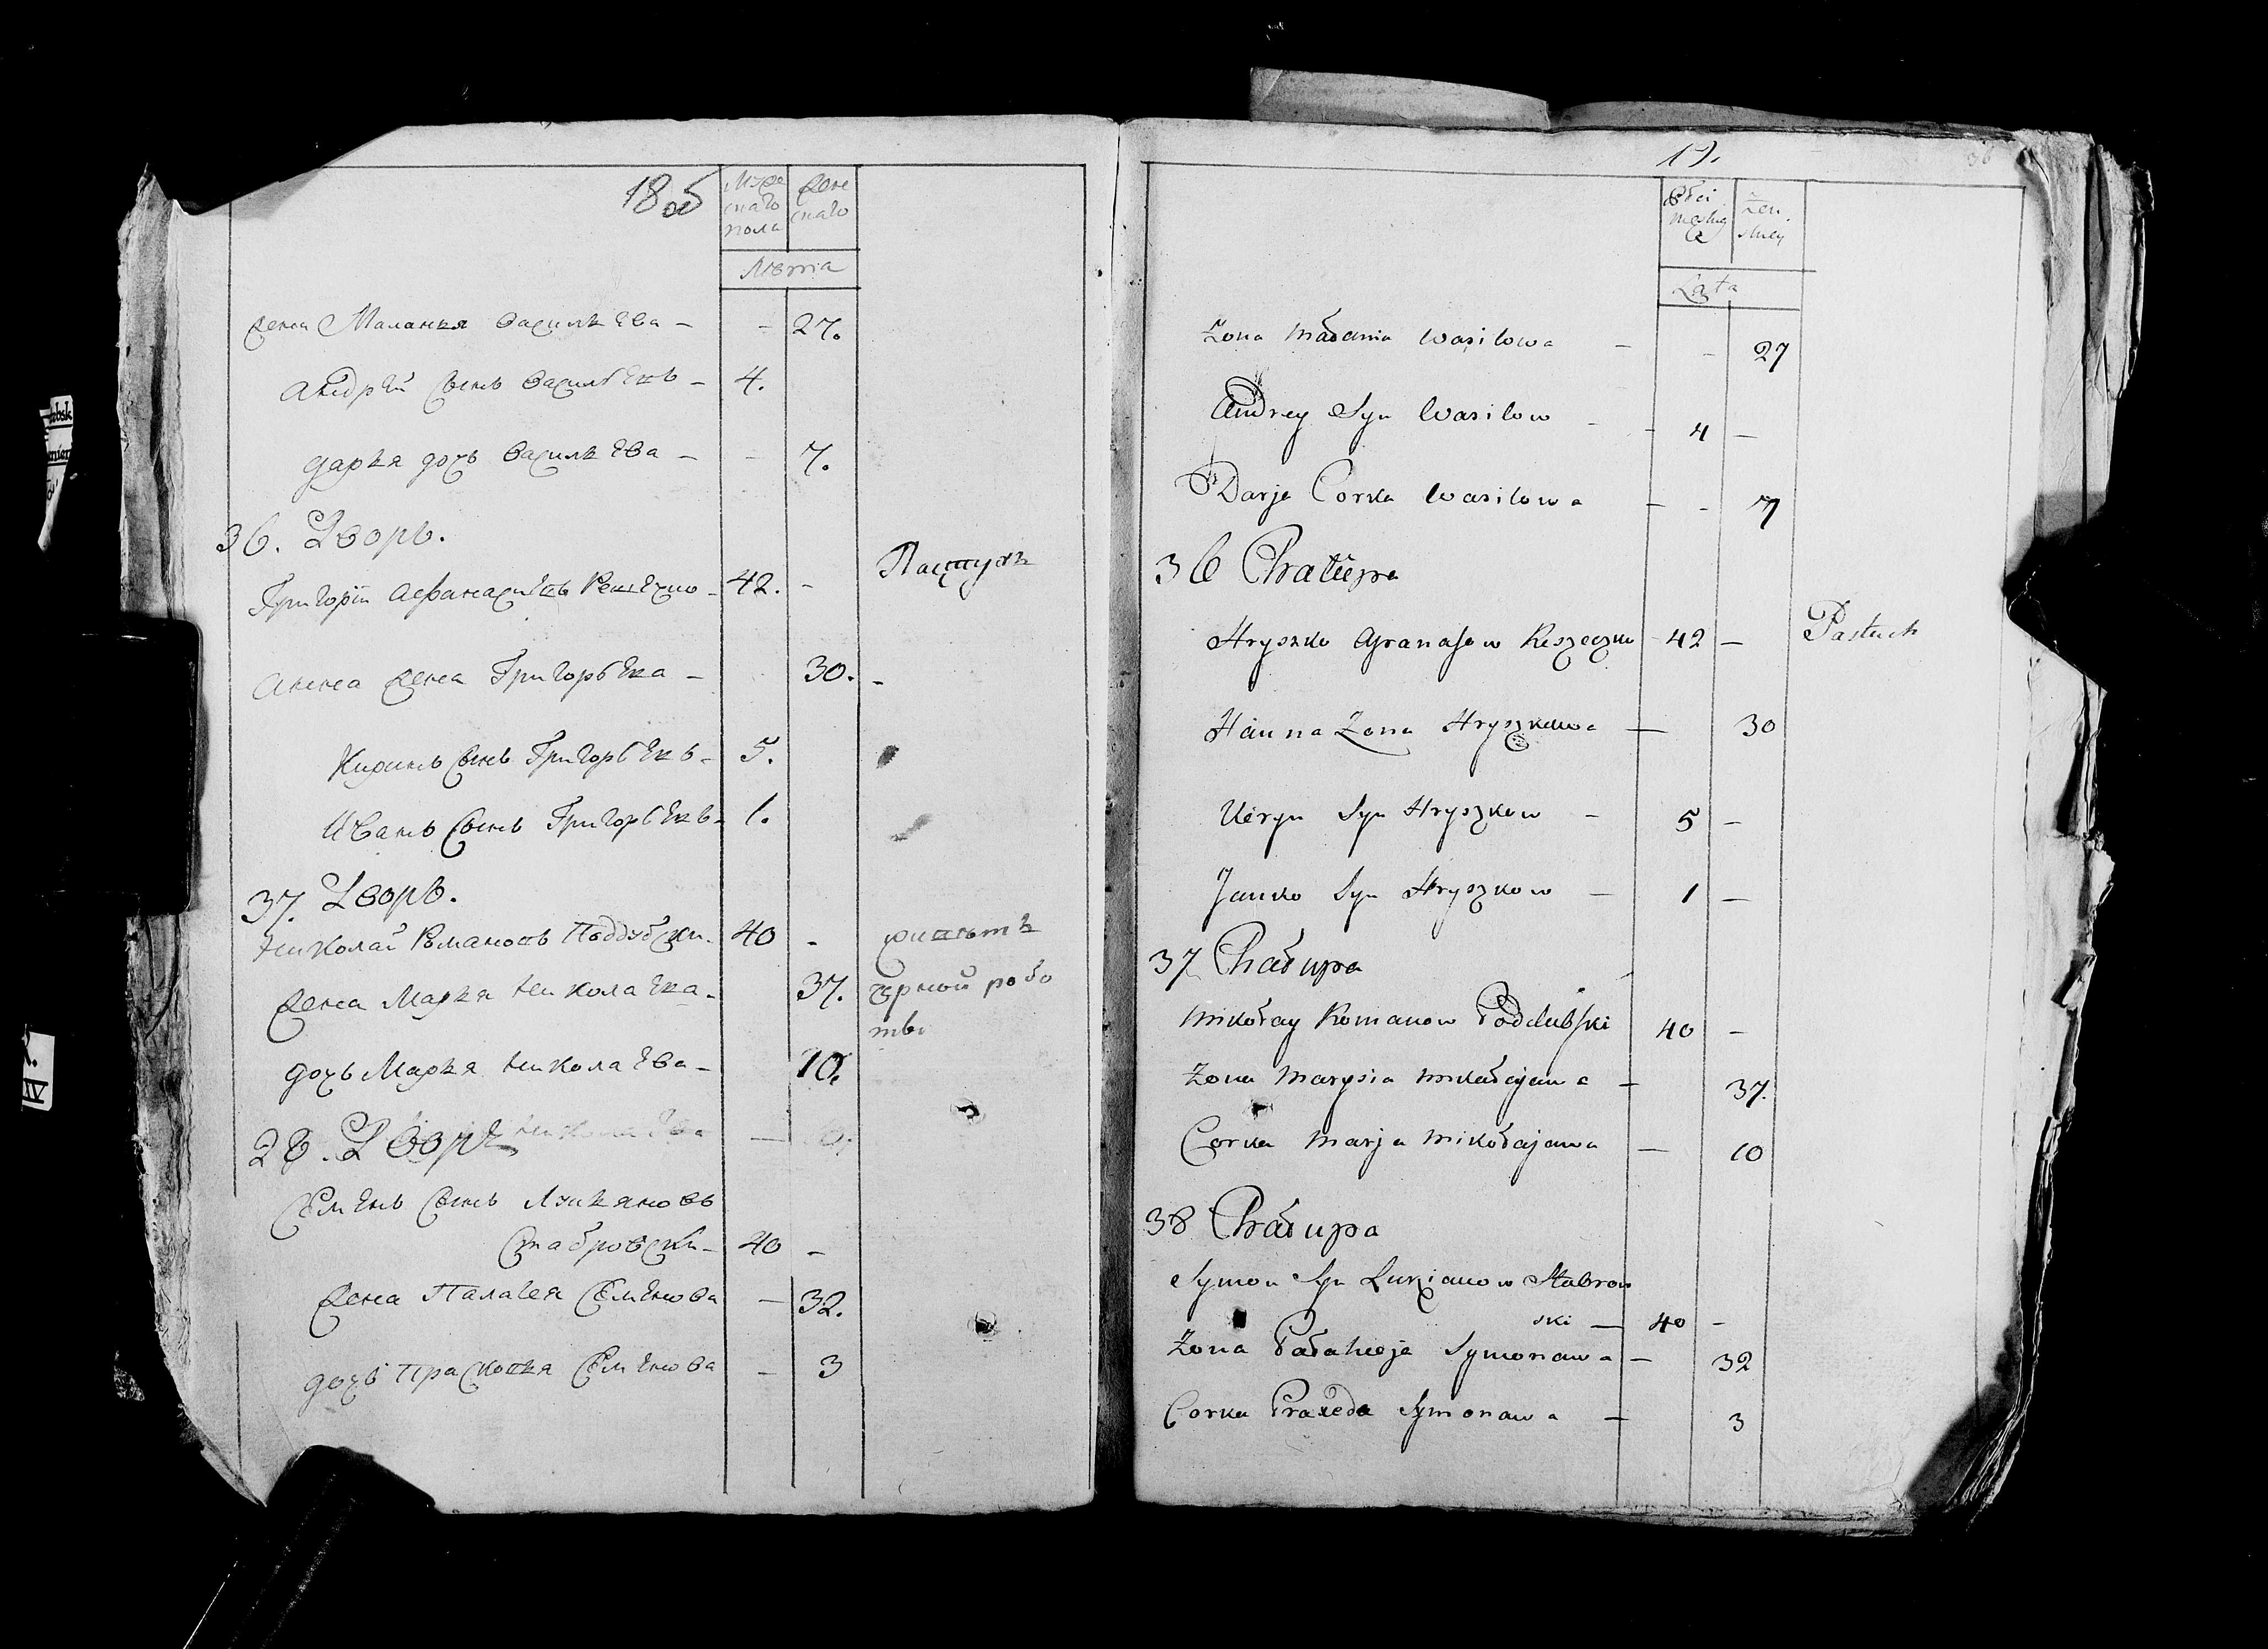 18 об
Муже
скаго
пола
жене
скаго
Лѣта
жена Маланья Васильева - - 27.
Андрѣй сынъ Васильевъ - 4.
Дарья дочь Васильева - - 7.
36. Дворъ.
Григорій Афанасьевъ Решечко - 42. - Пастухъ
Анна жена Григорьева - 30. -
сынъ Григорьевъ - 5.
Иванъ сынъ Григорьевъ - 1.
37. Дворъ.
Николай Романовъ Поддубски - 40 -
жена Марья Николаева - 37. чорной робо
ты
дочь Марья Николаева - 10.
28. Дворъ
Семенъ сынъ Лукяновъ
Стабровски - 40 -
жена Палагея Семенова - 32.
дочь Прасковья Семенова - 3
19.
Płci
męskiey
Żeń
skiey
Lata
Żona Małania Wasilowa - - 27
Andrey Syn Wasilow - - 4 -
Darja Corka Wasilowa - - 7
36 Chałupa
Hryszko Apanasow Reszeczko 42 - Pastuch
Hanna Żona Hryszkowa - 30
Syn Hryszkow - 5 -
Janko Syn Hryszkow - 1 -
37 Chałupa
Mikołay Romanow Poddubski 40 -
Żona Marysia Mikołajowa - 37.
Corka Marja Mikołajowa - 10
38 Chałupa
Symon Syn Lukjanow Stabrow
ski - 40 -
Żona Pałaheja Symonawa - 32
Corka Praxeda Symonawa - 3